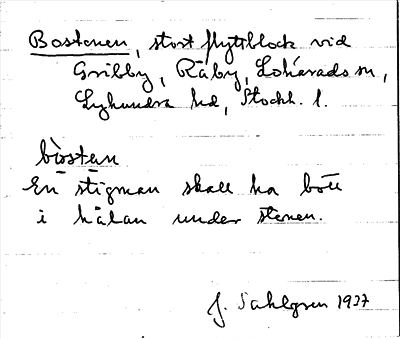 Bostenen, stort flyttblock vid
Gribby, Råby, Lohärads sn,
Lyhundra hd, Stockh. l.
bòsten
En stigman skall ha bott
i hålan under stenen.
J. Sahlgren 1937